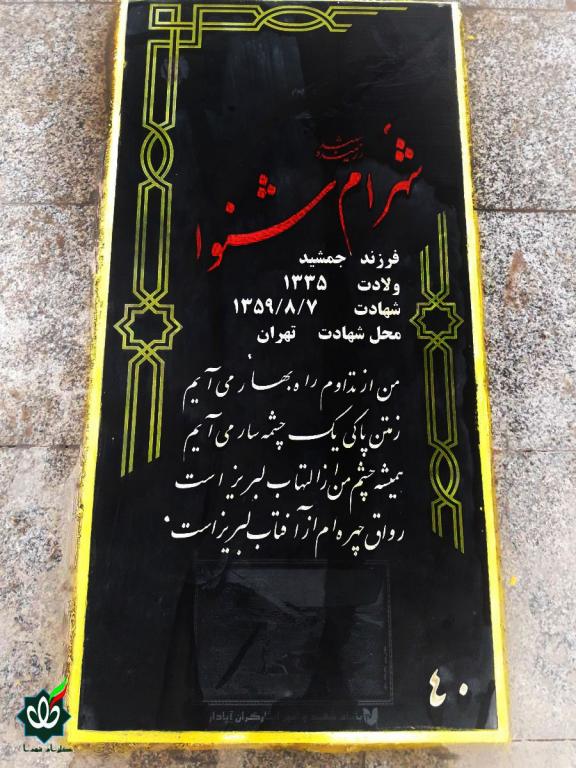 شهید رزمنده
شهرام شنوا
فرزند جمشید
ولادت ۱۳۳۵
شهادت ۱۳۵۹/۸/۷
محل شهادت تهران
من از تداوم راه بهار می آیم
زمتن پاکی یک چشمه سار می آیم
همیشه چشم من از التهاب لبریز است
رواق چهره ام از آفتاب لبریز است.
۴۰